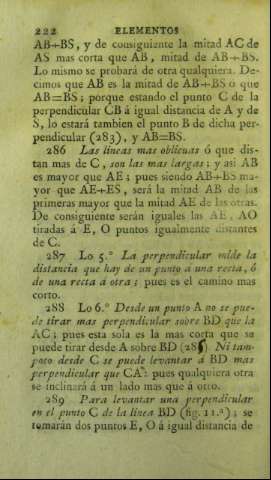 222 ELEMENTOS
AB+BS, y de consiguiente la mitad AC de
AS mas corta que AB, mitad de AB+BS.
Lo mismo se probará de otra qualquiera. De-
cimos que AB es la mitad de AB+BS ó que
AB=BS; porque estando el punto C de la
perpendicular CB á igual distancia de A y de
S, lo estará tambien el punto B de dicha per-
pendicular (283), y AB=BS.
286 Las lineas mas oblicuas ó que dis-
tan mas de C, son las mas largas; y asi AB
es mayor que AE; pues siendo AB+BS ma-
yor que AE+ES, será la mitad AB de las
primeras mayor que la mitad AE de las otras.
De consiguiente serán iguales las AE, AO
tiradas á E, O puntos igualmente distantes
de C.
287 Lo 5.º La perpendicular mide la
distancia que hay de un punto a una recta, ó
de una recta á otra; pues es el camino mas
corto.
288 Lo 6.º Desde un punto A no se pue-
de tirar mas perpendicular sobre BD que la
AC; pues esta sola es la mas corta que se
puede tirar desde A sobre BD (286) Ni tam-
poco desde C se puede levantar á BD mas
perpendicular que CA: pues qualquiera otra
se inclinará á un lado mas que á otro.
289 Para levantar una perpendicular
en el punto C de la linea BD (fig. 11.ª); se
tomarán dos puntos E, O á igual distancia de